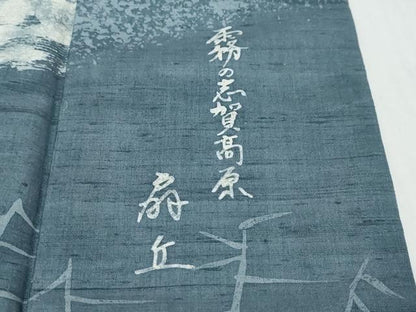 霧の志賀高原
扇丘